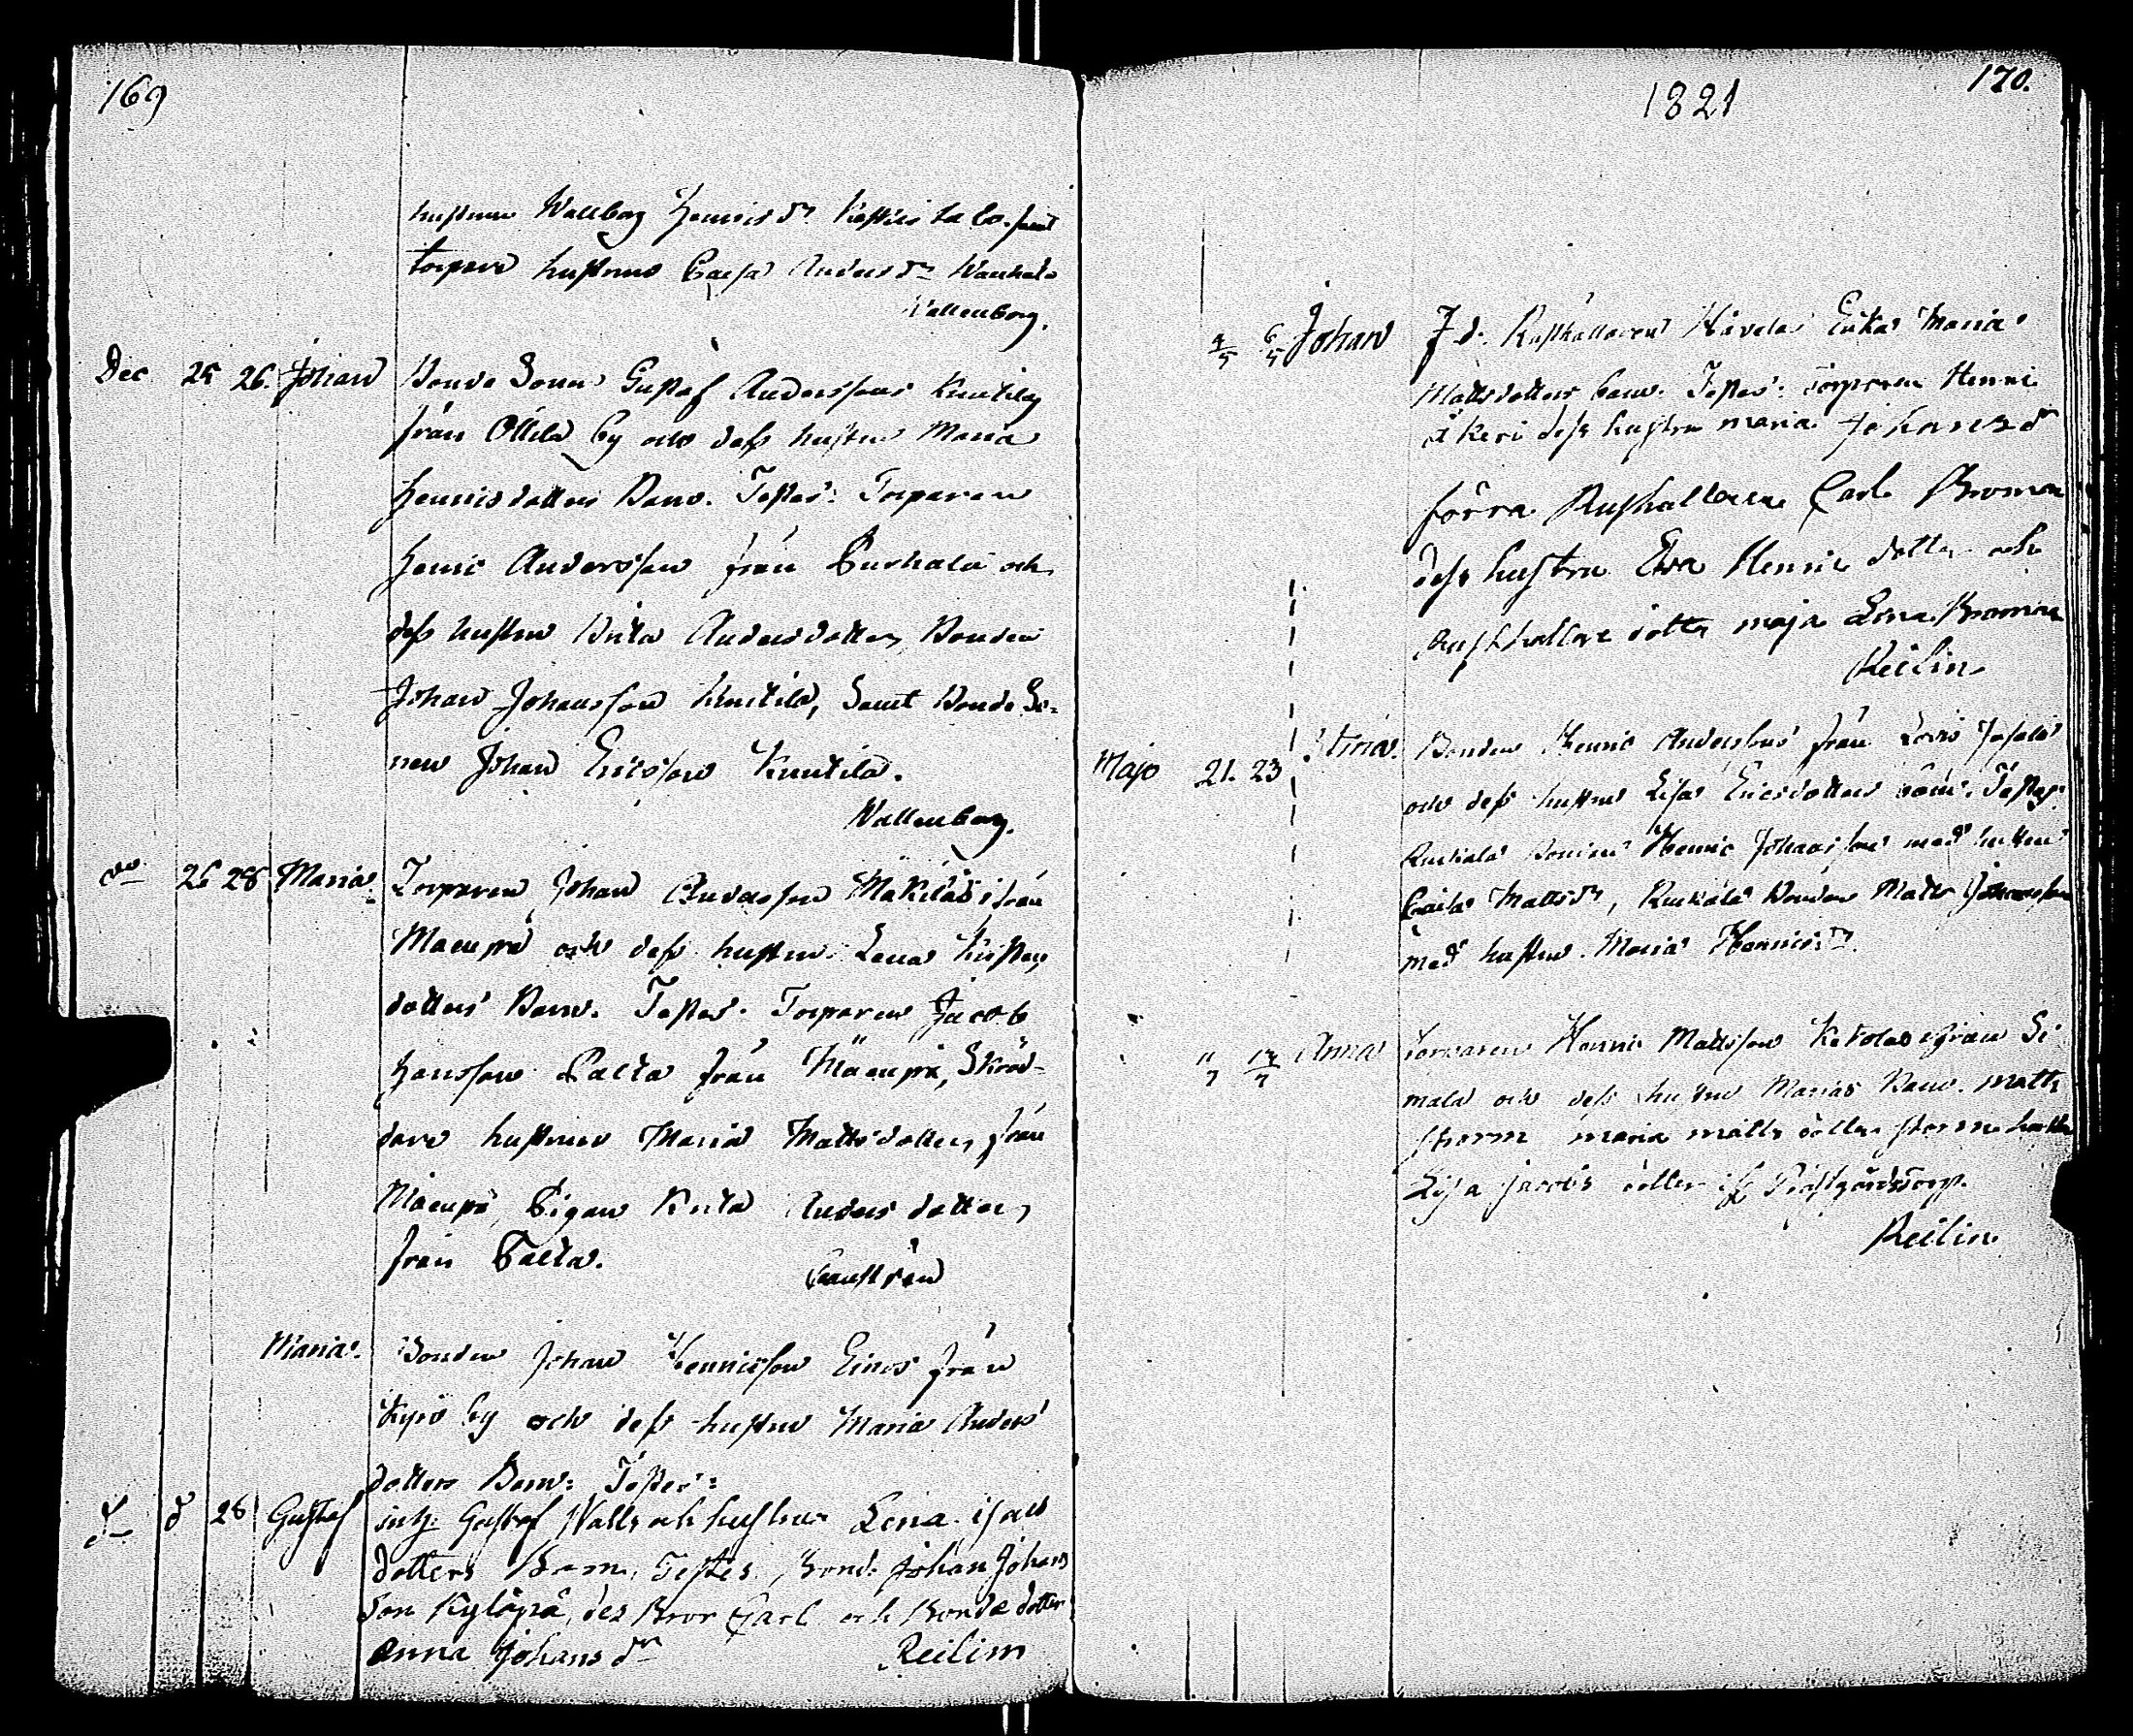 169
hustrun Wallborg Henricsdr samt
torpare hustrun Caisa Andersdr
Wallenborg.
Dec 25 26. Johan Bonde Sonen Gustaf Anderssons Knutila
från Ollila by och dess hustru Maria
Henricsdotters Barn. Testes: Torparen
Henric Andersson från och
dess hustru Brita Andersdotter, Bonden
Johan Johansson Knutila, Samt Bonde So-
nen Johan Ericsson Knutila.
Wallenborg.
do 26 28 Maria. Torparen Johan Andersson Mäkiläs ifrån
Mäenpä och dess hustru Lena
dotters Barn. Testes. Torparen Jacob
Hansson Palta från Mäenpä, Skräd-
dare hustrun Maria Mattsdotter, från
Mäenpä, Pigan Brita Anders dotter,
från Palta.
Maria. Bonden Johan Henricsson Einos från
Kyrö by och dess hustru Maria Anders
dotters Barn: Testes:
d d 28 Gustaf inh. Gustaf Walls och hustrun Lena isacs
dotters Barn. Testes, Bond. Johan Johans
son Kyläpä, des Bror Carl och Bonde dotter
Anna Johans dr Reilin
1821
170.
4/5 6/5 Johan F.d. Rusthållaren Erika Maria
Mattsdotters barn. Testes: Torparen Henric
dess hustru maria Johansdr
förra Rusthållaren Carl Broman
dess hustru Eva Henric dotter och
Rusthållare dotter maja Lena Broman
Reilin
Majo 21. 23 Stina. Bonden Henric Anderssons från
och dess hustru Lisa Ericsdotters barn. Testes:
Bonden Henric Johansson med hustrun
Caisa Mattsdr, Bonden Matts Johansson
med hustru Maria Henricsdr.
11/7 13/7 Anna Torparen Henric Mattsson Ketolas ifrån Si
mala och dess hustru Marias Barn. matts
storm maria matts dotter storm
Lisa jacobs dotter if Prästgårdstorp.
Reilin